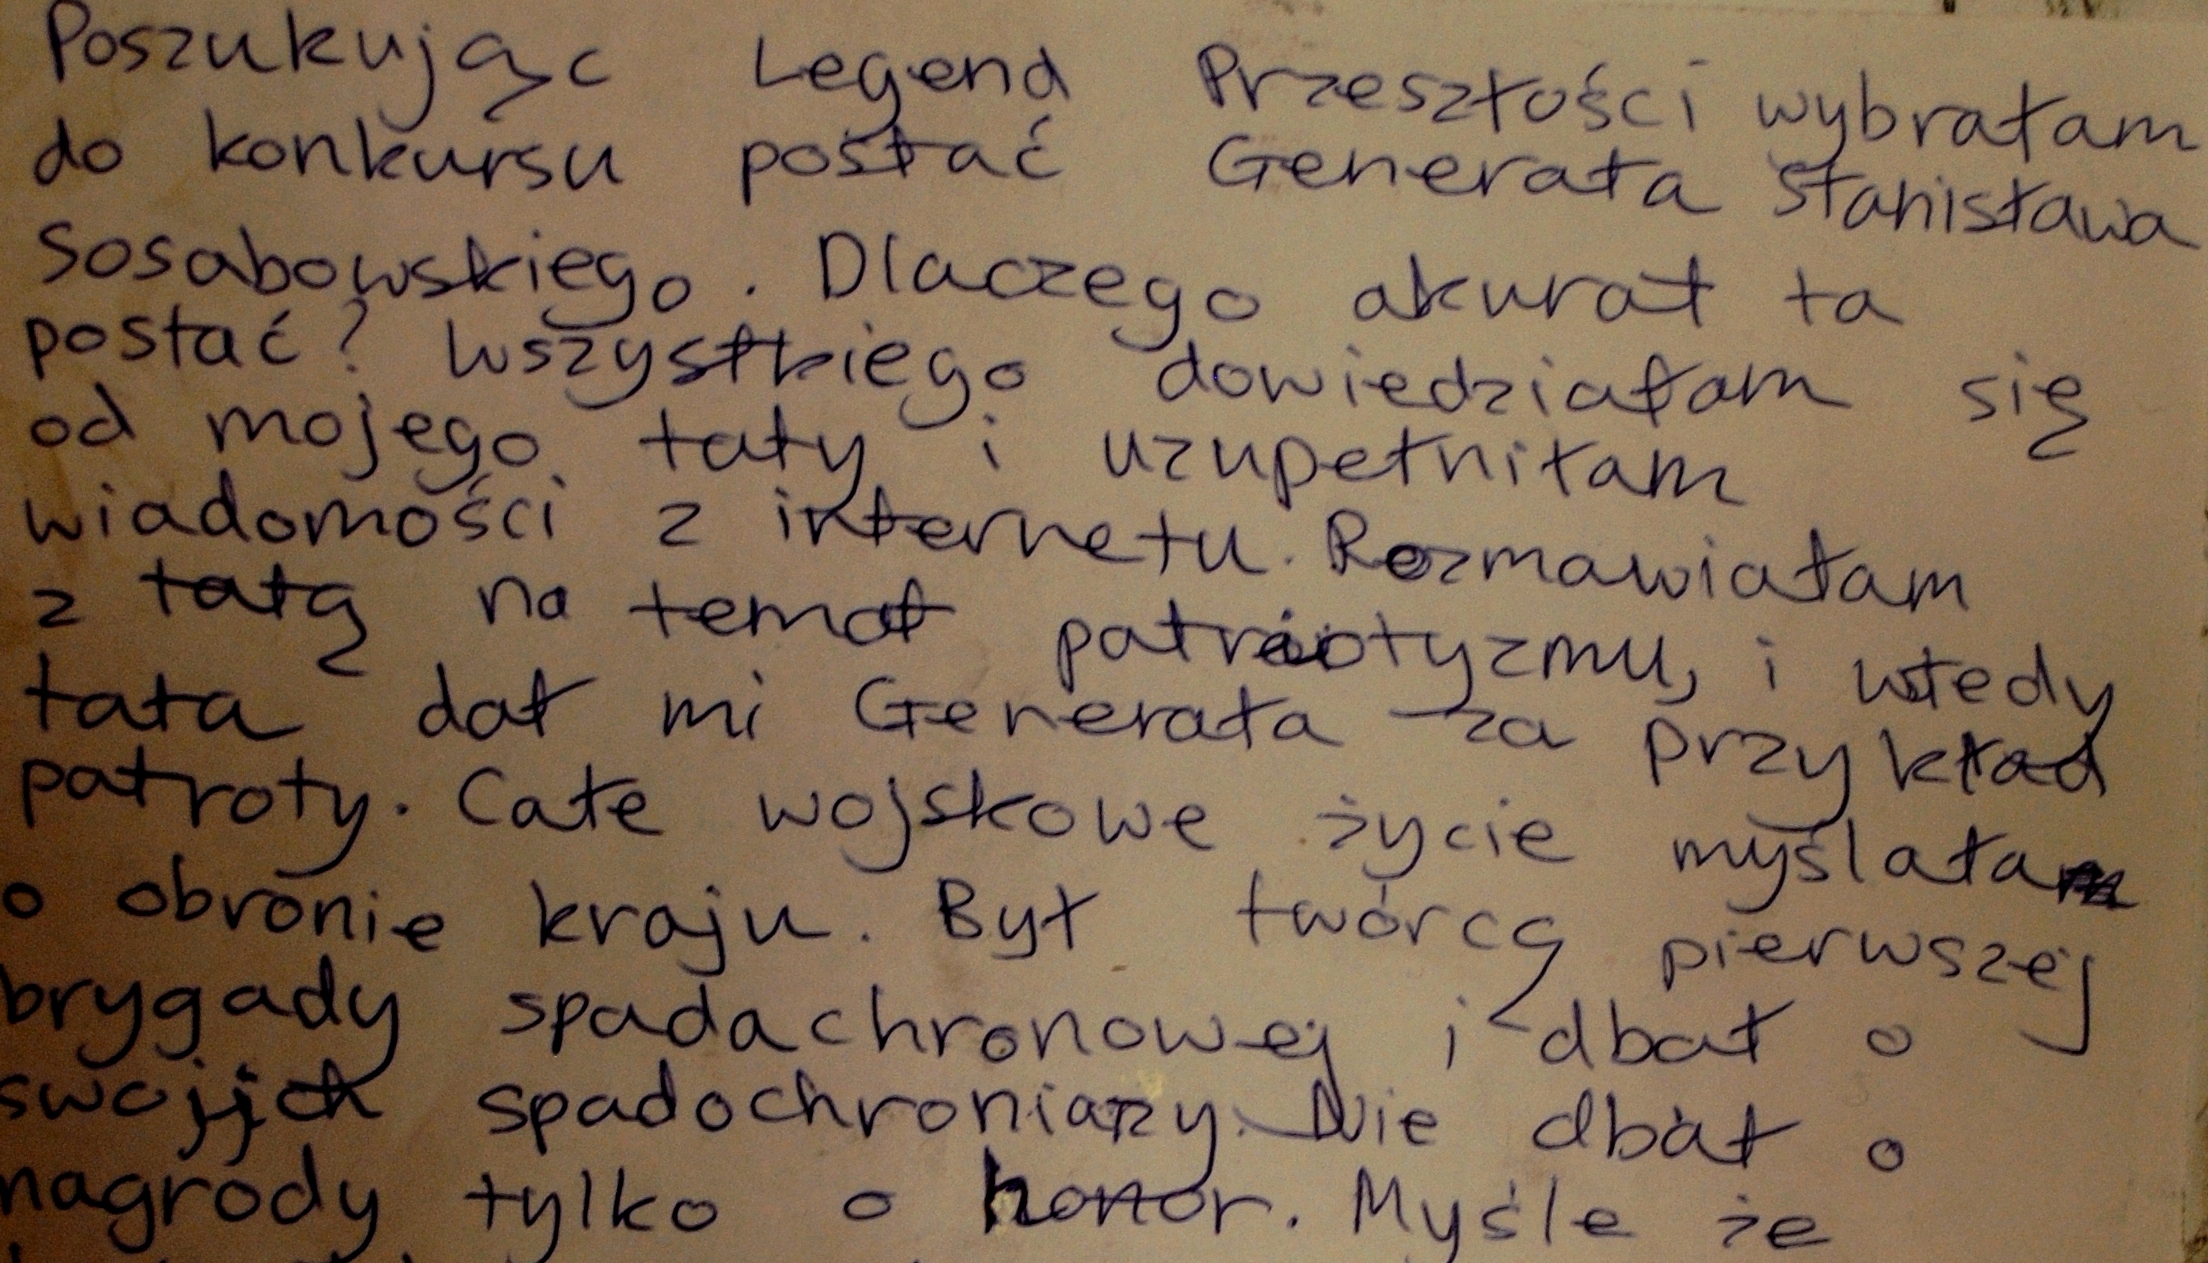 Poszukując Legend Przeszłości wybrałam
do konkursu postać Generała Stanisława
Sosabowskiego. Dlaczego akurat ta
postać? Wszystkiego dowiedziałam się
od mojego taty i uzupełniłam
wiadomości z internetu. Rozmawiałam
z tatą na temat patriotyzmu, i wtedy
tata dał mi Generała za przykład
patroty. Całe wojskowe życie myślała
o obronie kraju. Był twórcą pierwszej
brygady spadachronowej i dbał o
swojich spadochroniarzy. Nie dbał o
nagrody tylko o honor. Myśle że